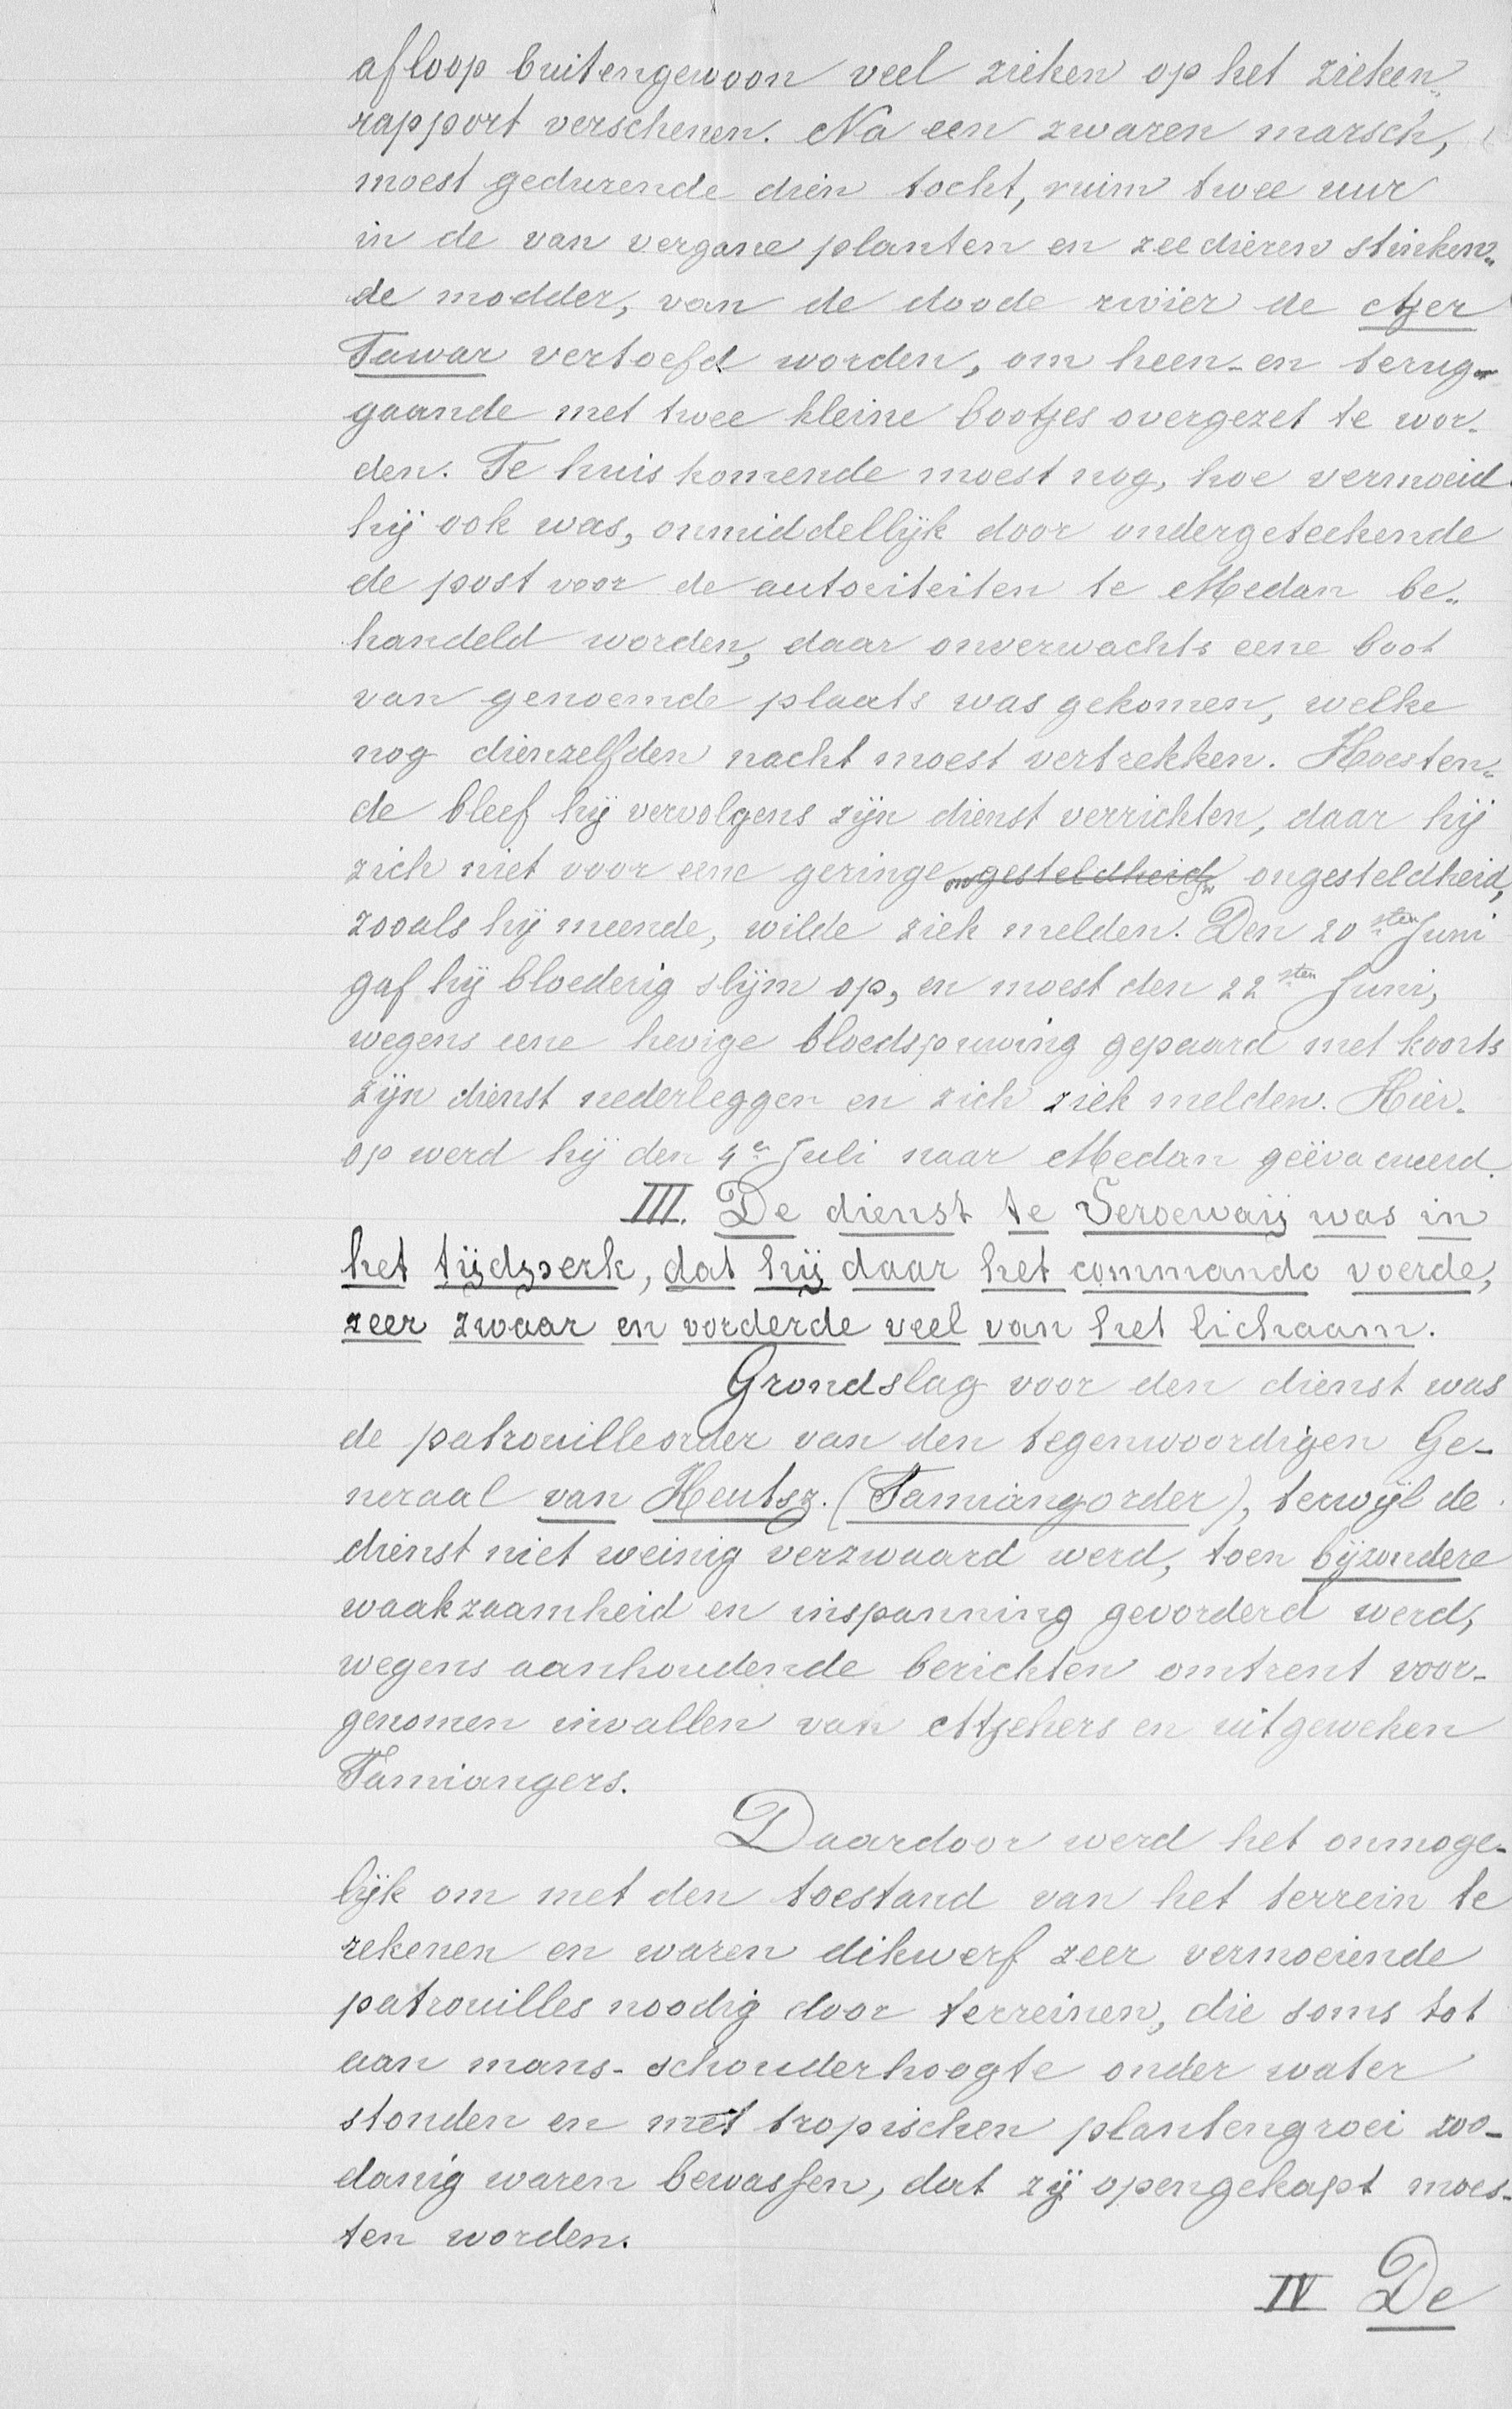 afloop buitengewoon veel zieken op het zieken„
rapport verschenen. Na een zwaren marsch,
moest gedurende dien tocht, ruim twee uur
in de van vergane planten en zeedieren stinken„
de modder, van de doode rivier de Ajer
Tawar vertoefd worden, om heen- en terug-
gaande met twee kleine bootjes overgezet te wor-
den. Te huis komende moest nog, hoe vermoeid
hij ook was, onmiddellijk door ondergeteekende
de post voor de autoriteiten te Medan be„
handeld worden, daar onverwachts eene boot
van genoemde plaats was gekomen, welke
nog dienzelfden nacht moest vertrekken. Hoesten„
de bleef hij vervolgens zijn dienst verrichten, daar hij
zich niet voor eene geringe ongesteldheid ongesteldheid,
zooals hij meende, wilde ziek melden. Den 20sten Juni
gaf hij bloederig slijm op, en moest den 22sten Juni,
wegens eene hevige bloedspuwing gepaard met koorts
zijn dienst nederleggen en zich ziek melden. Hier-
op werd hij den 4e Juli naar Medan geëvacueerd.
III. De dienst te Seroewaij was in
het tijdperk, dat hij daar het commando voerde,
zeer zwaar en vorderde veel van het lichaam.
Grondslag voor den dienst was
de patrouilleorder van den tegenwoordigen Ge-
neraal van Heutsz. (Tamiangorder), terwijl de
dienst niet weinig verzwaard werd, toen bijzondere
waakzaamheid en inspanning gevorderd werd,
wegens aanhoudende berichten omtrent voor-
genomen invallen van Atjehers en uitgeweken
Tamiangers.
Daardoor werd het onmoge-
lijk om met den toestand van het terrein te
rekenen en waren dikwerf zeer vermoeiende
patrouilles noodig door terreinen, die soms tot
aan mans-schouderhoogte onder water
stonden en met tropischen plantengroei zoo-
danig waren bewassen, dat zij opengekapt moes-
ten worden.
IV De